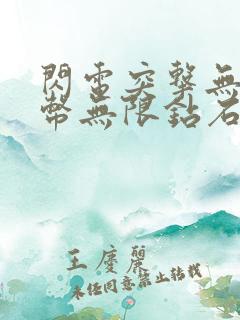 閃電突擊無
幣無限鈷石
王慶麗
未經同意禁止轉載